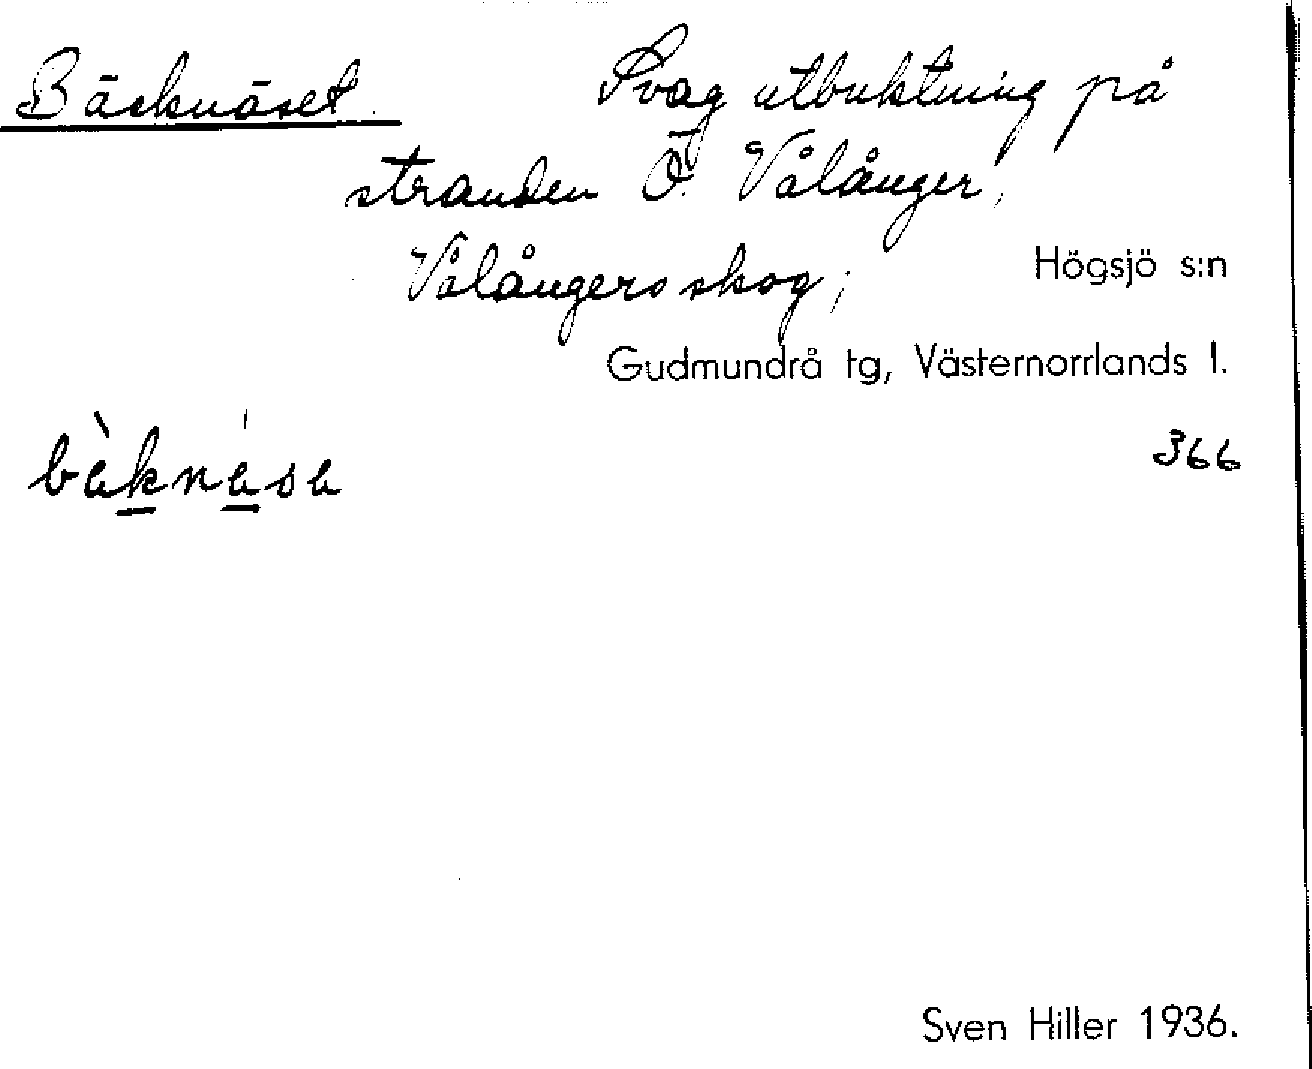 Bäcknäset. Svag utbuktning på
stranden Ö. Vålånger,
Vålångersskog; Högsjö s:n
Gudmundrå tg, Västernorrlands l.
366
Sven Hiller 1936.